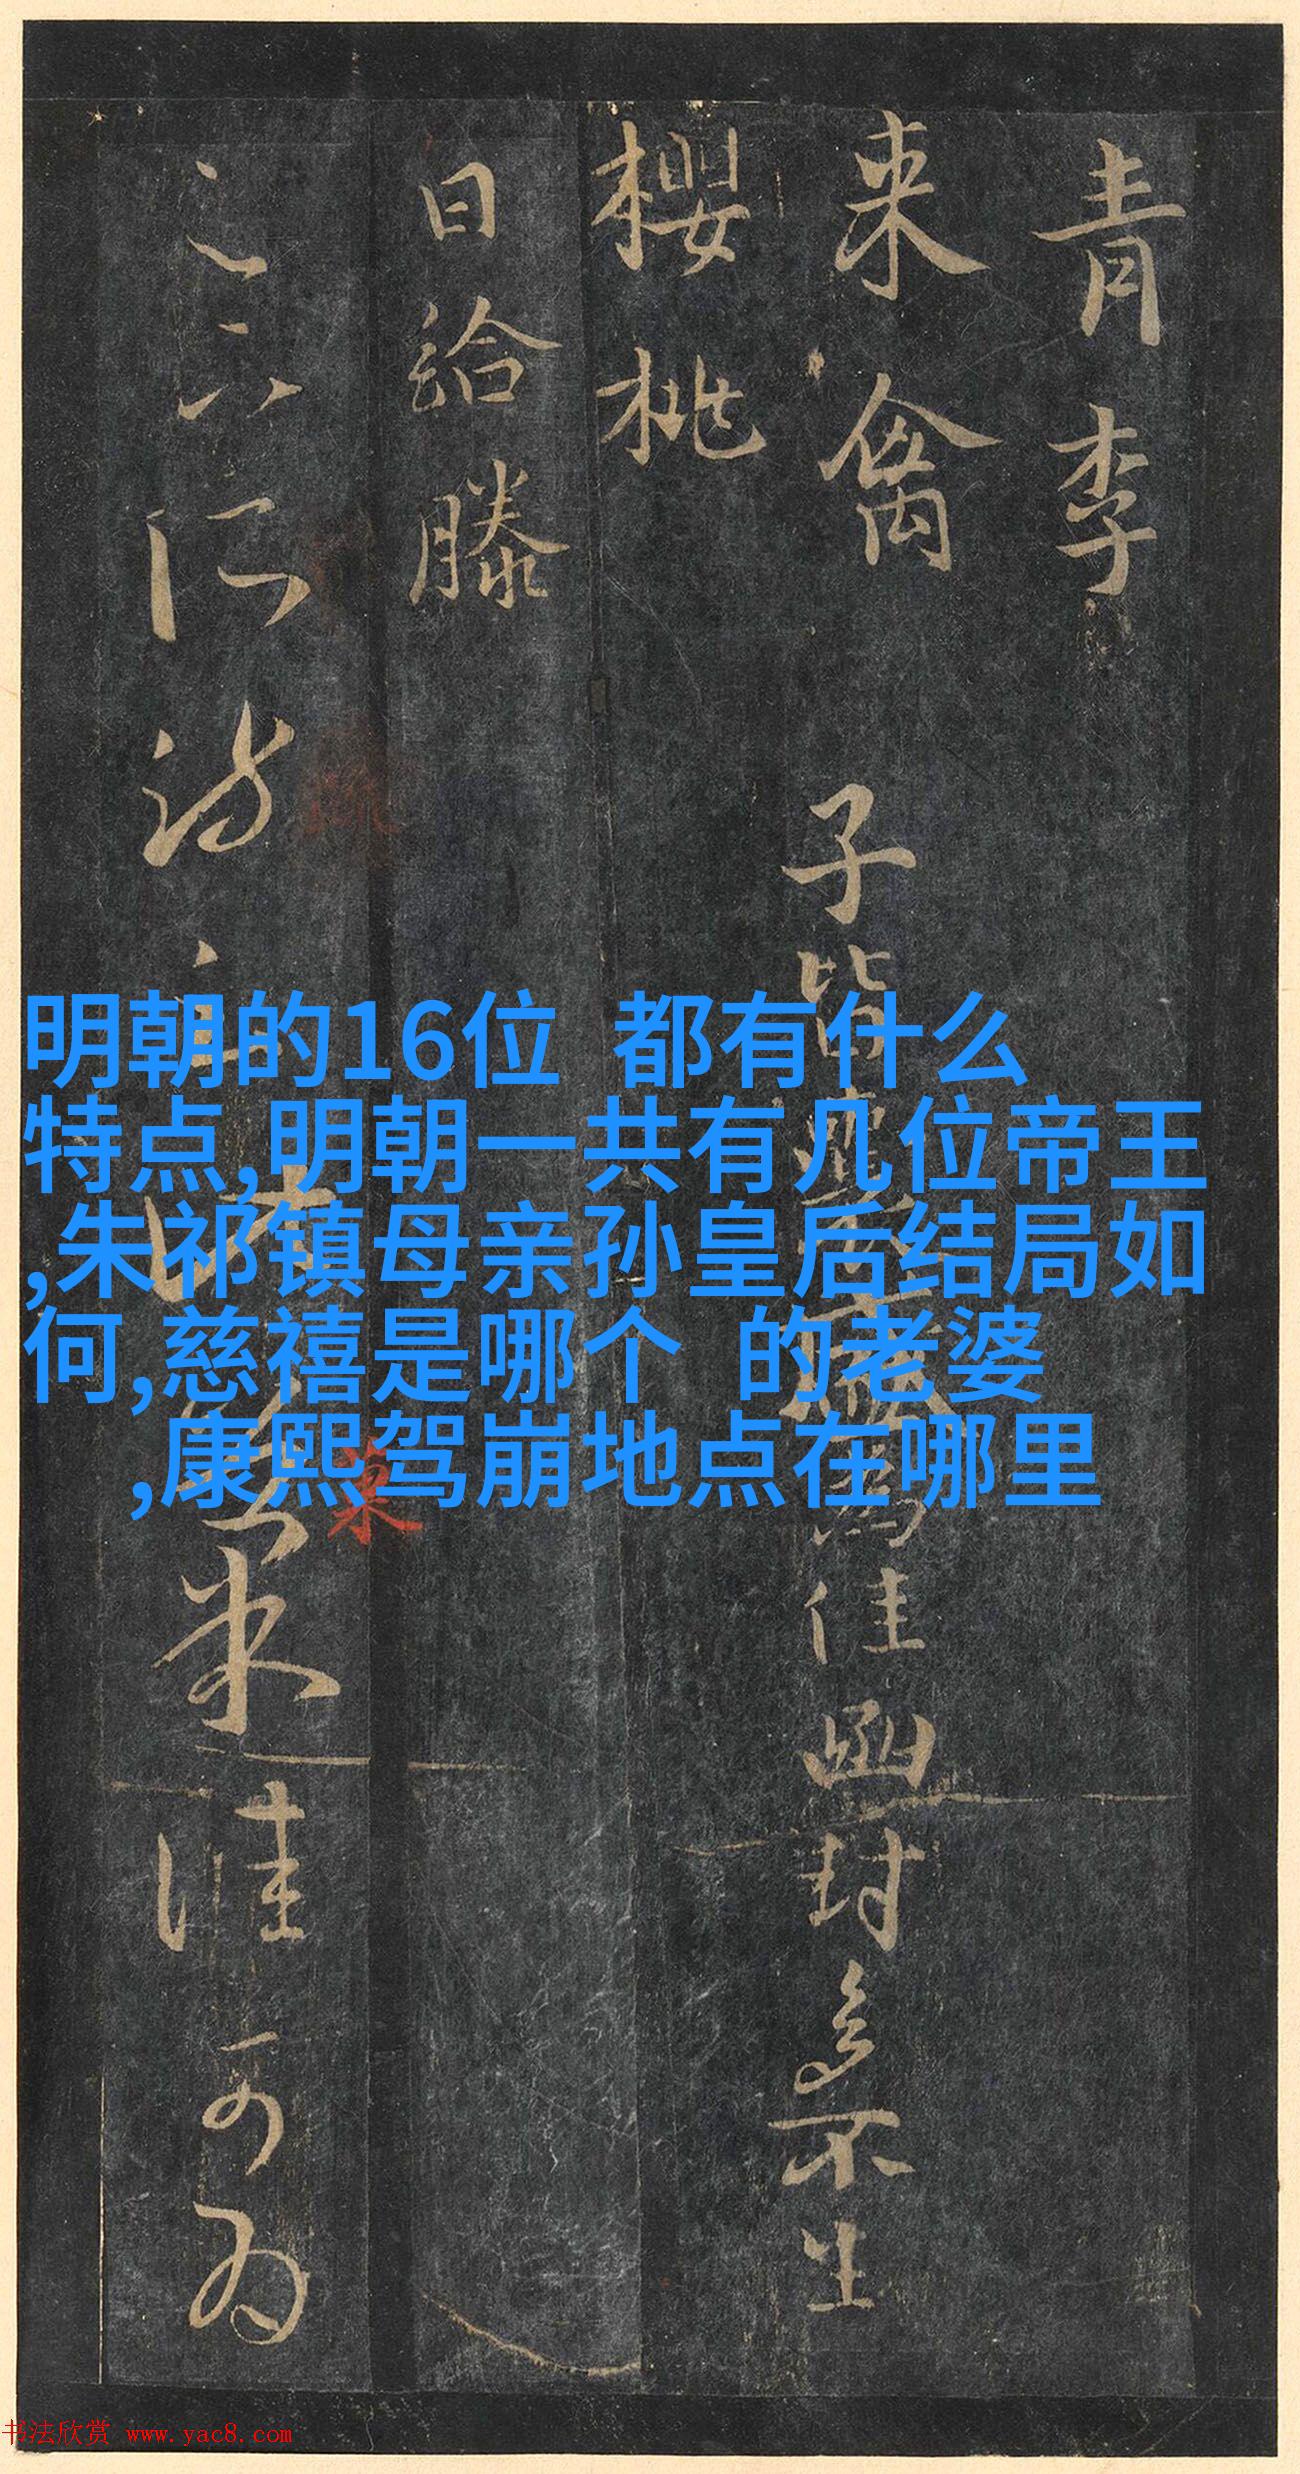 青李
来禽
櫻桃
日給滕
子皆囊盛為佳函封多不生
足下所疏云此果佳可為
明朝的16位 都有什么
特点,明朝一共有几位帝王
,朱祁镇母亲孙皇后结局如
何,慈禧是哪个 的老婆
,康熙驾崩地点在哪里
书法欣赏 www.yac8.com